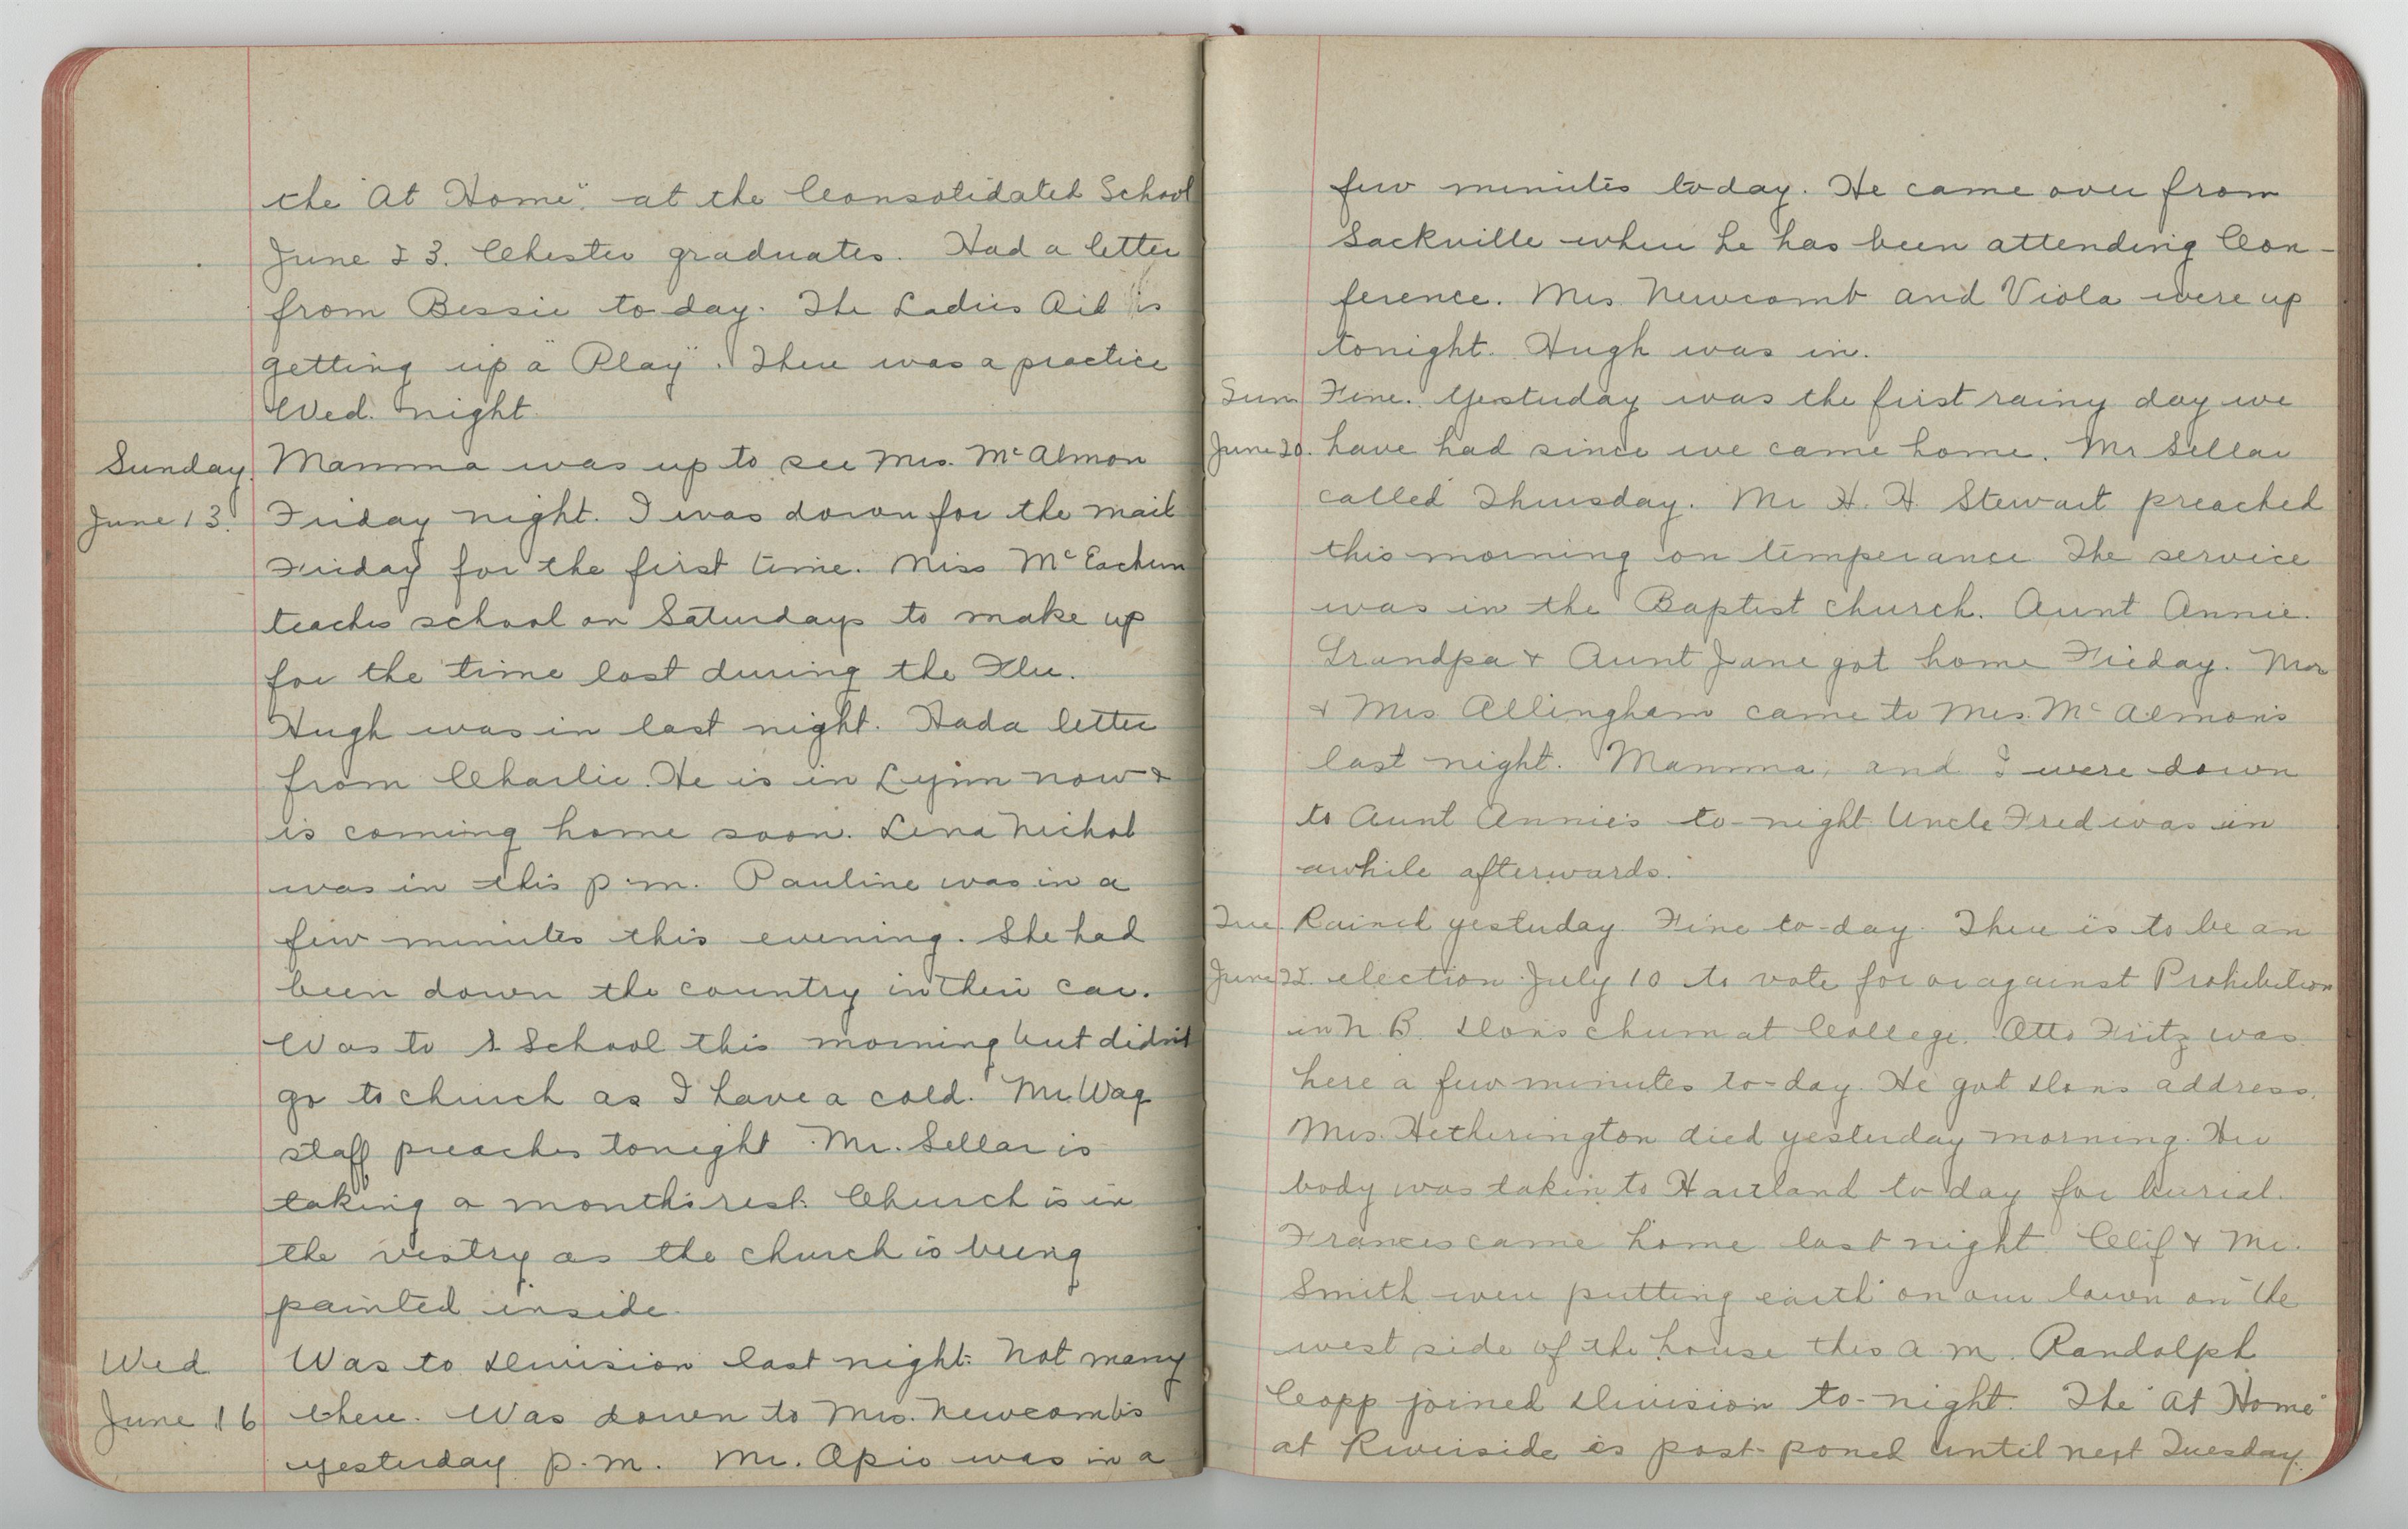 the "At Home", at the Consolidated School
June 23. Chester graduates. Had a letter
from Bessie to day. The Ladies Aid is
getting up a "Play". There was a practice
Wed. night.
Sunday. Mamma was up to see Mrs. McAlmon
June 13. Friday night. I was down for the mail
Friday for the first time. Miss McEachern
teaches school on Saturdays to make up
for the time lost during the Flu.
Hugh was in last night. Had a letter
from Charlie. He is in Lynn now &
is coming home soon. Lena Nichol
was in this p.m. Pauline was in a
few minutes this evening. She had
been down the country in their car.
Was to S School this morning but didn't
go to church as I have a cold. Mr. Wag
staff preaches tonight. Mr. Sellar is
taking a month's rest. Church is in
the vestry as the church is being
painted inside.
Wed Was to Division last night. Not many
June 16 there. Was down to Mrs. Newcomb's
yesterday p.m. Mr. Opie was in a
few minutes today. He came over from
Sackville where he has been attending Con-
ference. Mrs. Newcomb and Viola were up
tonight. Hugh was in.
Sun Fine. Yesterday was the first rainy day we
June 20. have had since we came home. Mr Sellar
called Thursday. Mr H. H. Stewart preached
this morning on temperance. The service
was in the Baptist church. Aunt Annie.
Grandpa & Aunt Jane got home Friday. Mr
& Mrs Allingham came to Mrs. McAlmon's
last night. Mamma, and I were down
to Aunt Annie's to-night. Uncle Fred was in
awhile afterwards.
Tue. Rained yesterday. Fine to-day. There is to be an
June 22. election July 10 to vote for or against Prohibition
in N B. Don's chum at College. Otto Fritz was
here a few minutes to-day. He got Don's address.
Mrs. Hetherington died yesterday morning. Her
body was taken to Hartland to day for burial.
Frances came home last night. Clif & Mr.
Smith were putting earth on our lawn on the
west side of the house this a.m. Randolph
Copp joined Division to-night. The "At Home"
at Riverside is post-poned until next Tuesday.